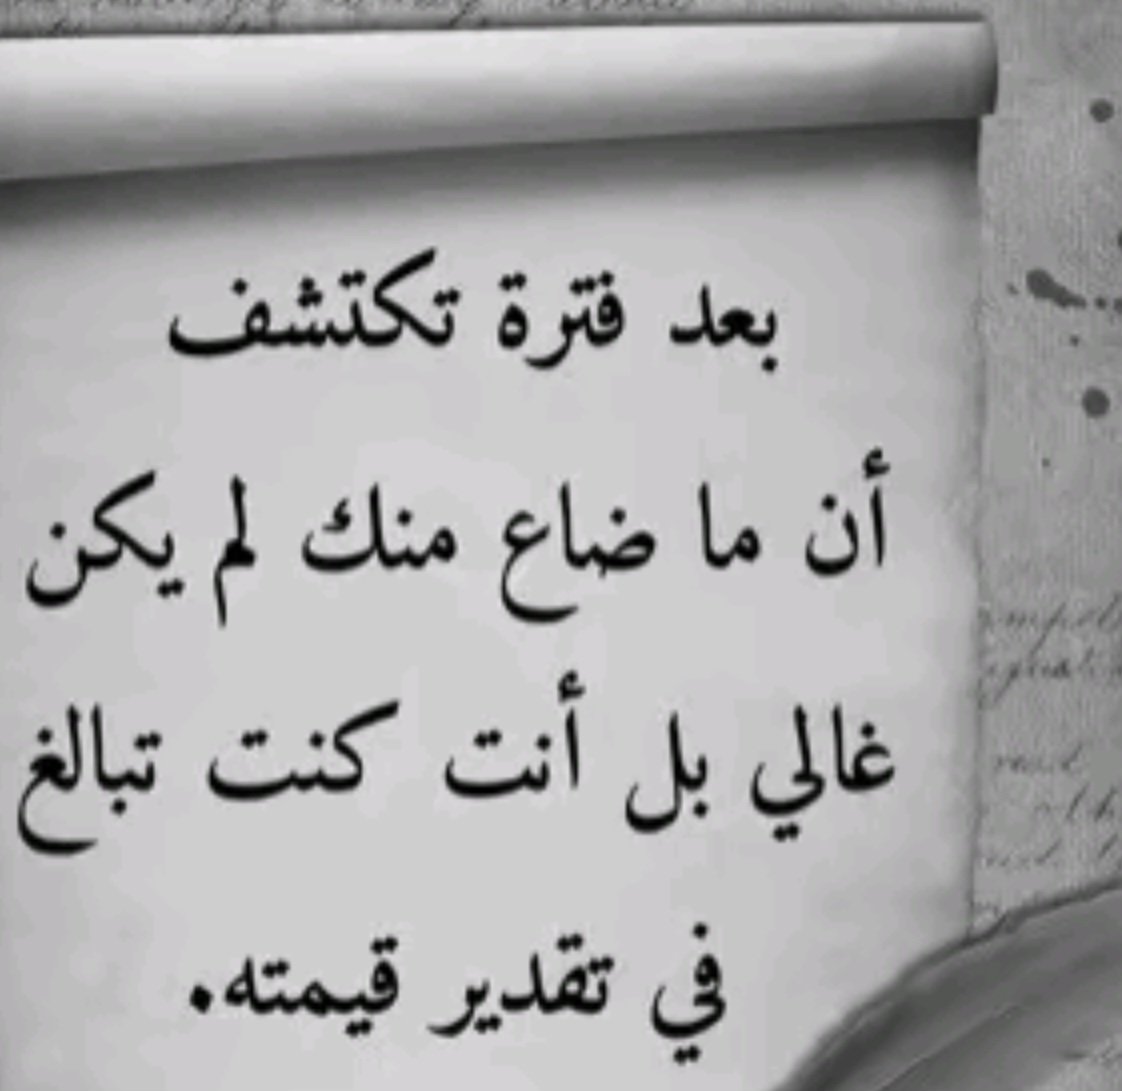 بعد فترة تكتشف
أن ما ضاع منك لم يكن
غالي بل أنت كنت تبالغ
في تقدير قيمته.